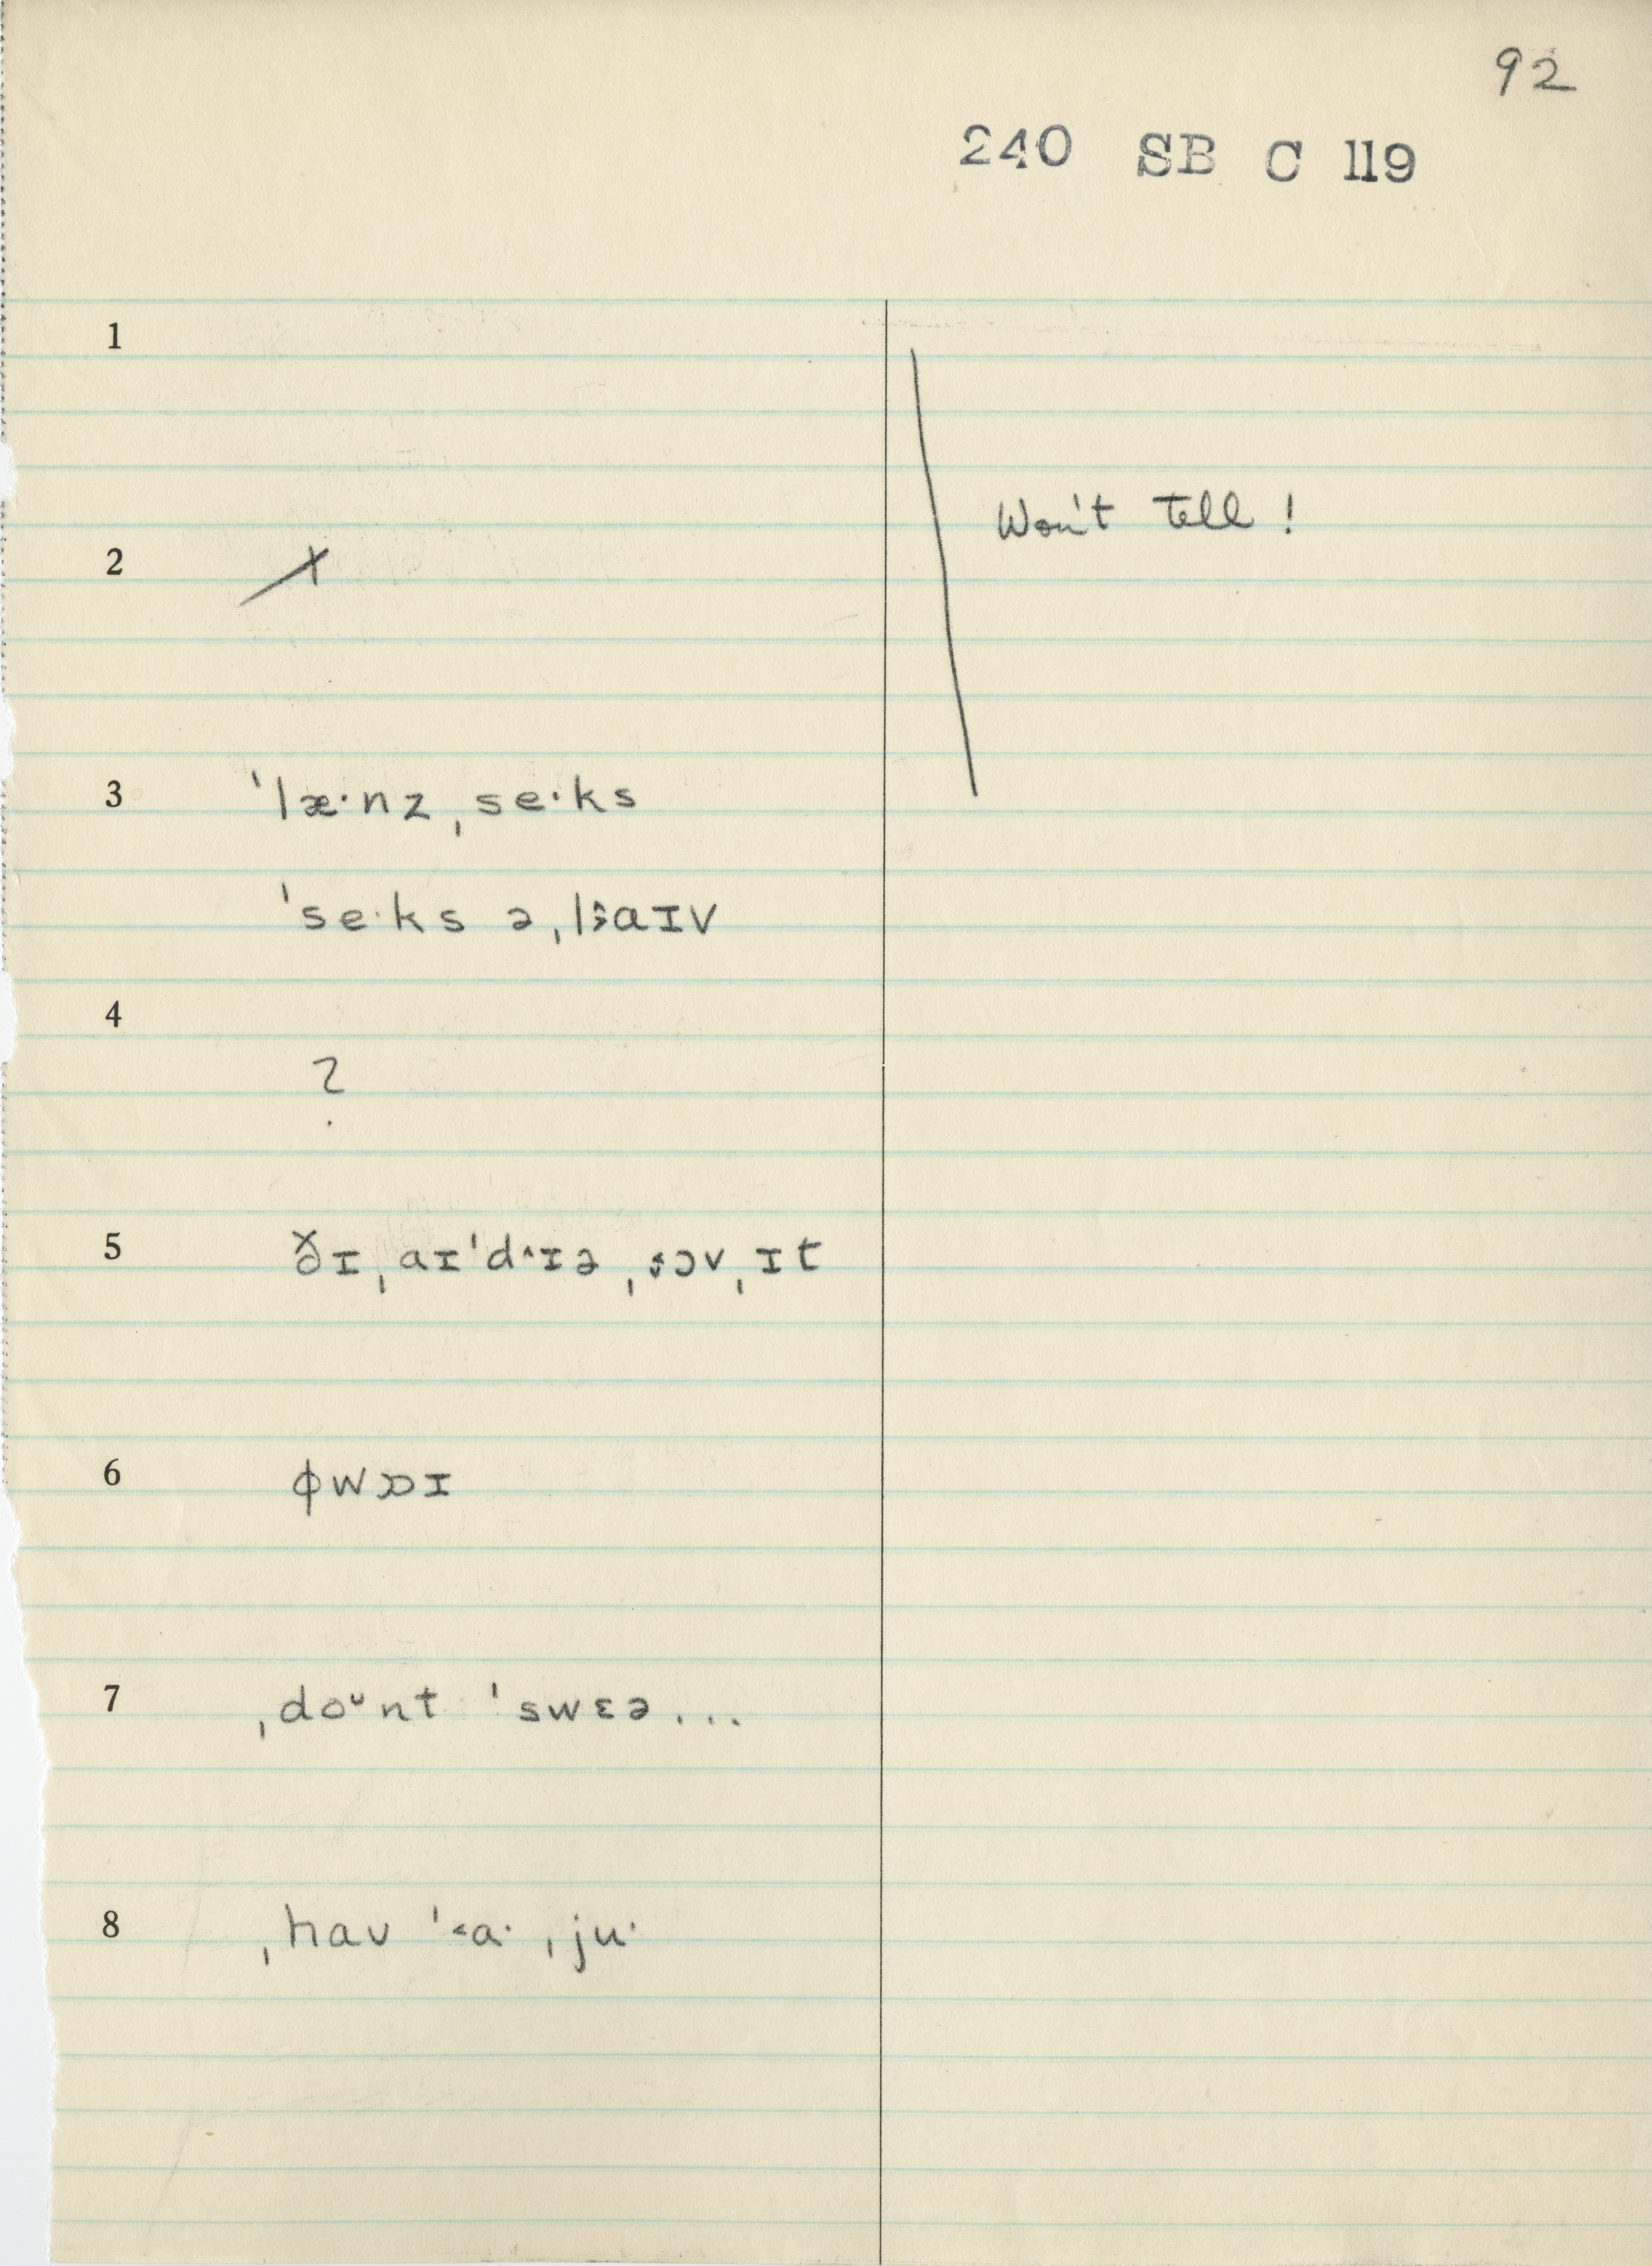 92
240 SB C 119
1
Won't tell!
2 x
3 ˈlæ·nz ˌse·ks
ˈse·ks əˌlaɪv
4
?
5 ðɪ ˌaɪˈd^ɪə ˌɔv ˌɪt
6 ɸwɒɪ
7 ˌdoᶷnt ˈswɛə...
8 ˌhav ˈ˂a· ˌju·